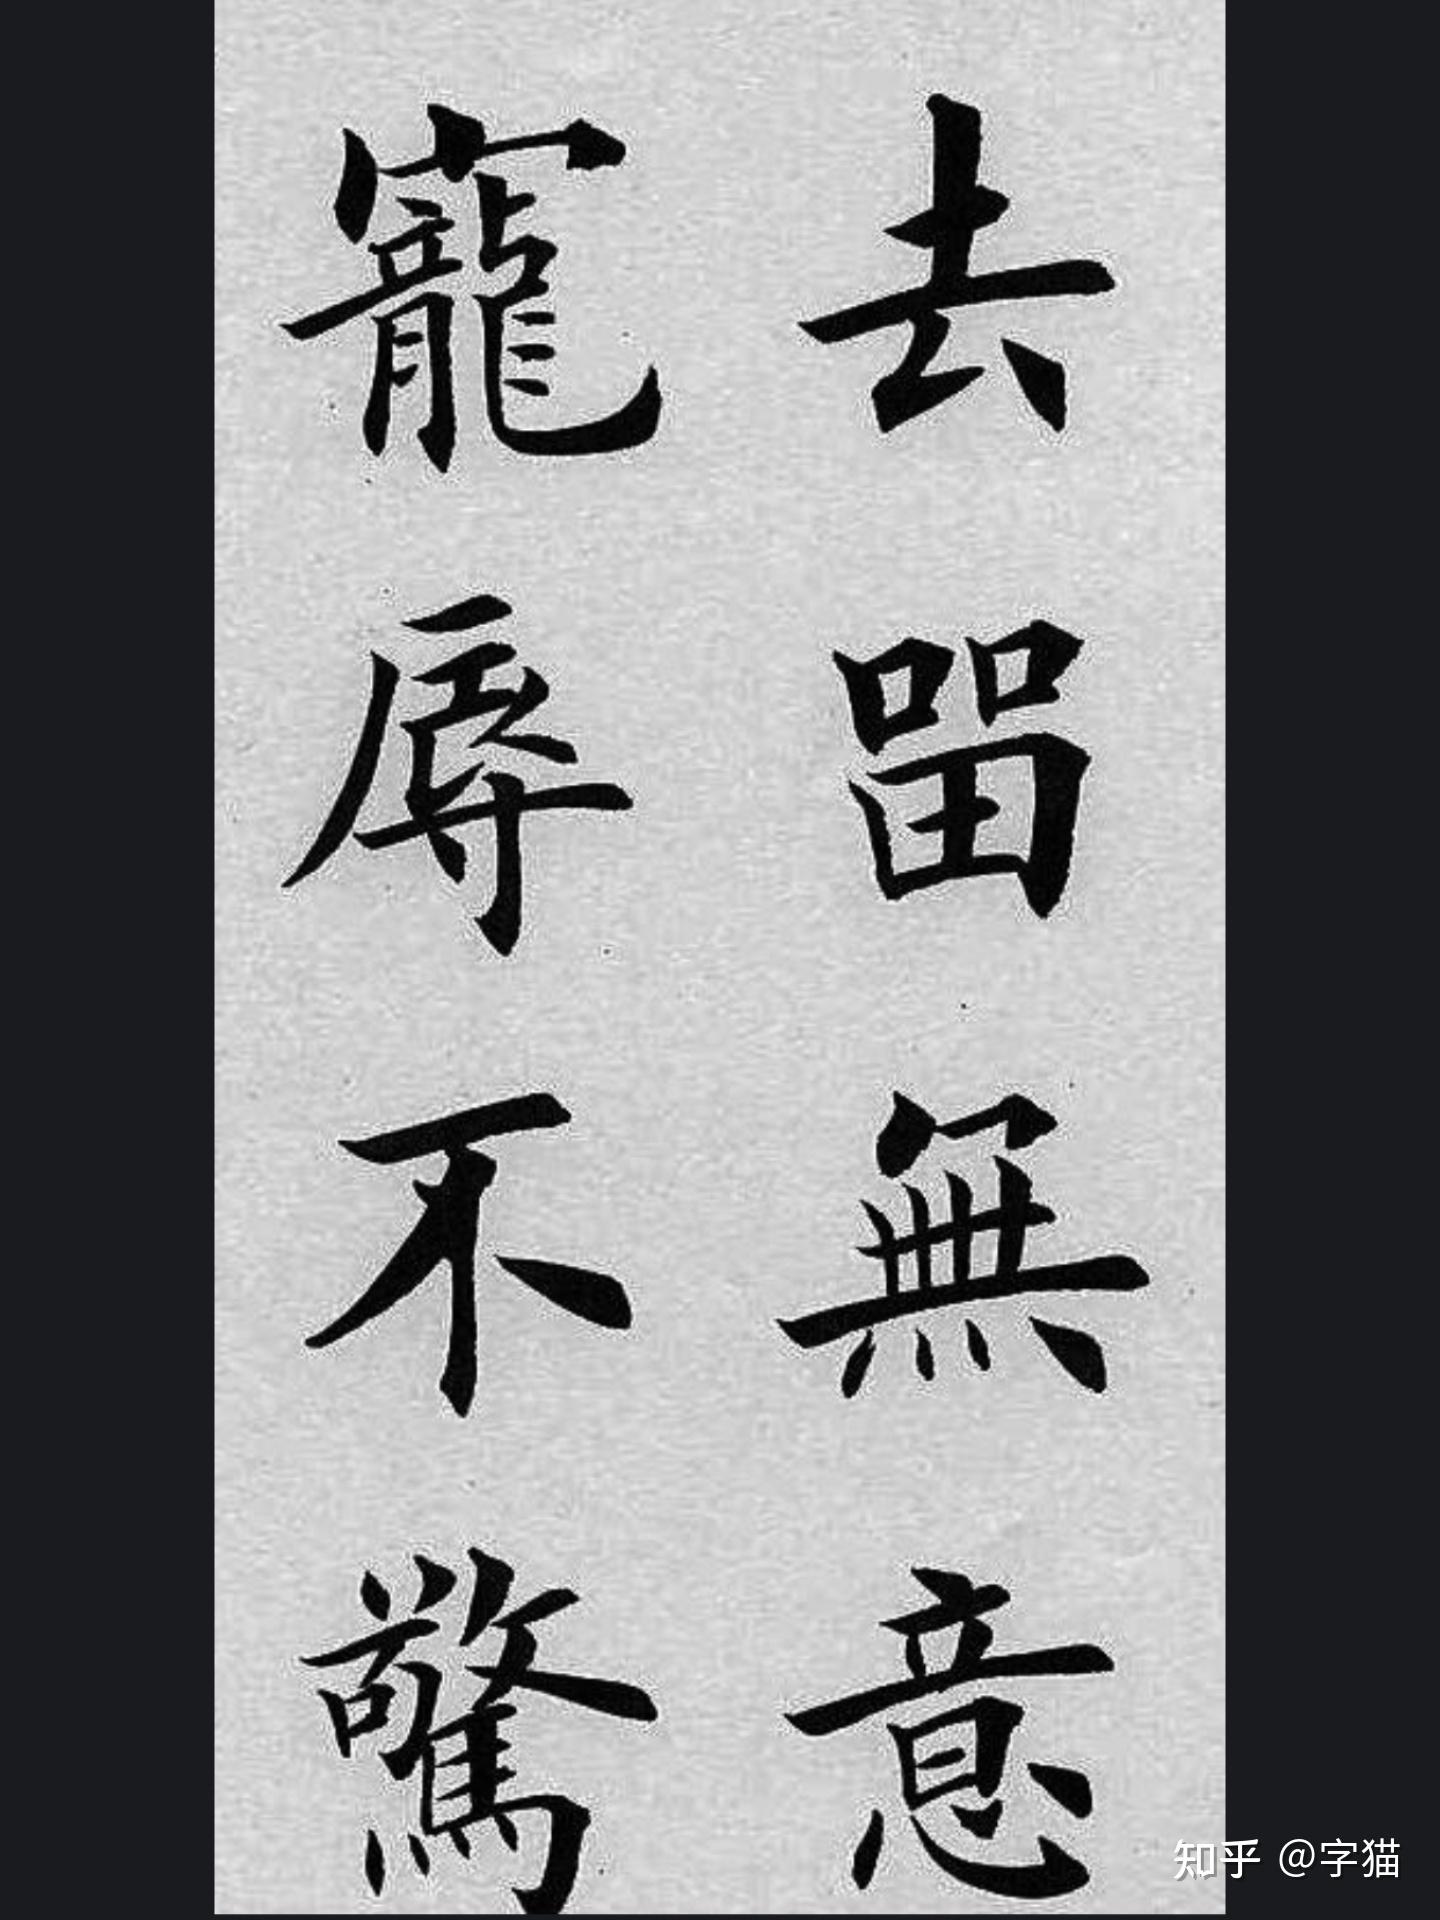 去留無意
寵辱不驚
知乎 @字猫